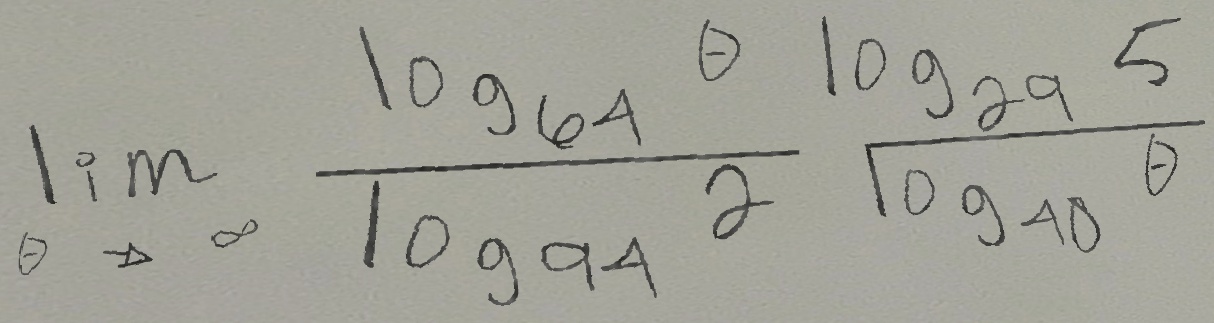 \lim_{\theta \to \infty} \frac{\log_{64} \theta}{\log_{94} 2} \frac{\log_{29} 5}{\log_{40} \theta}